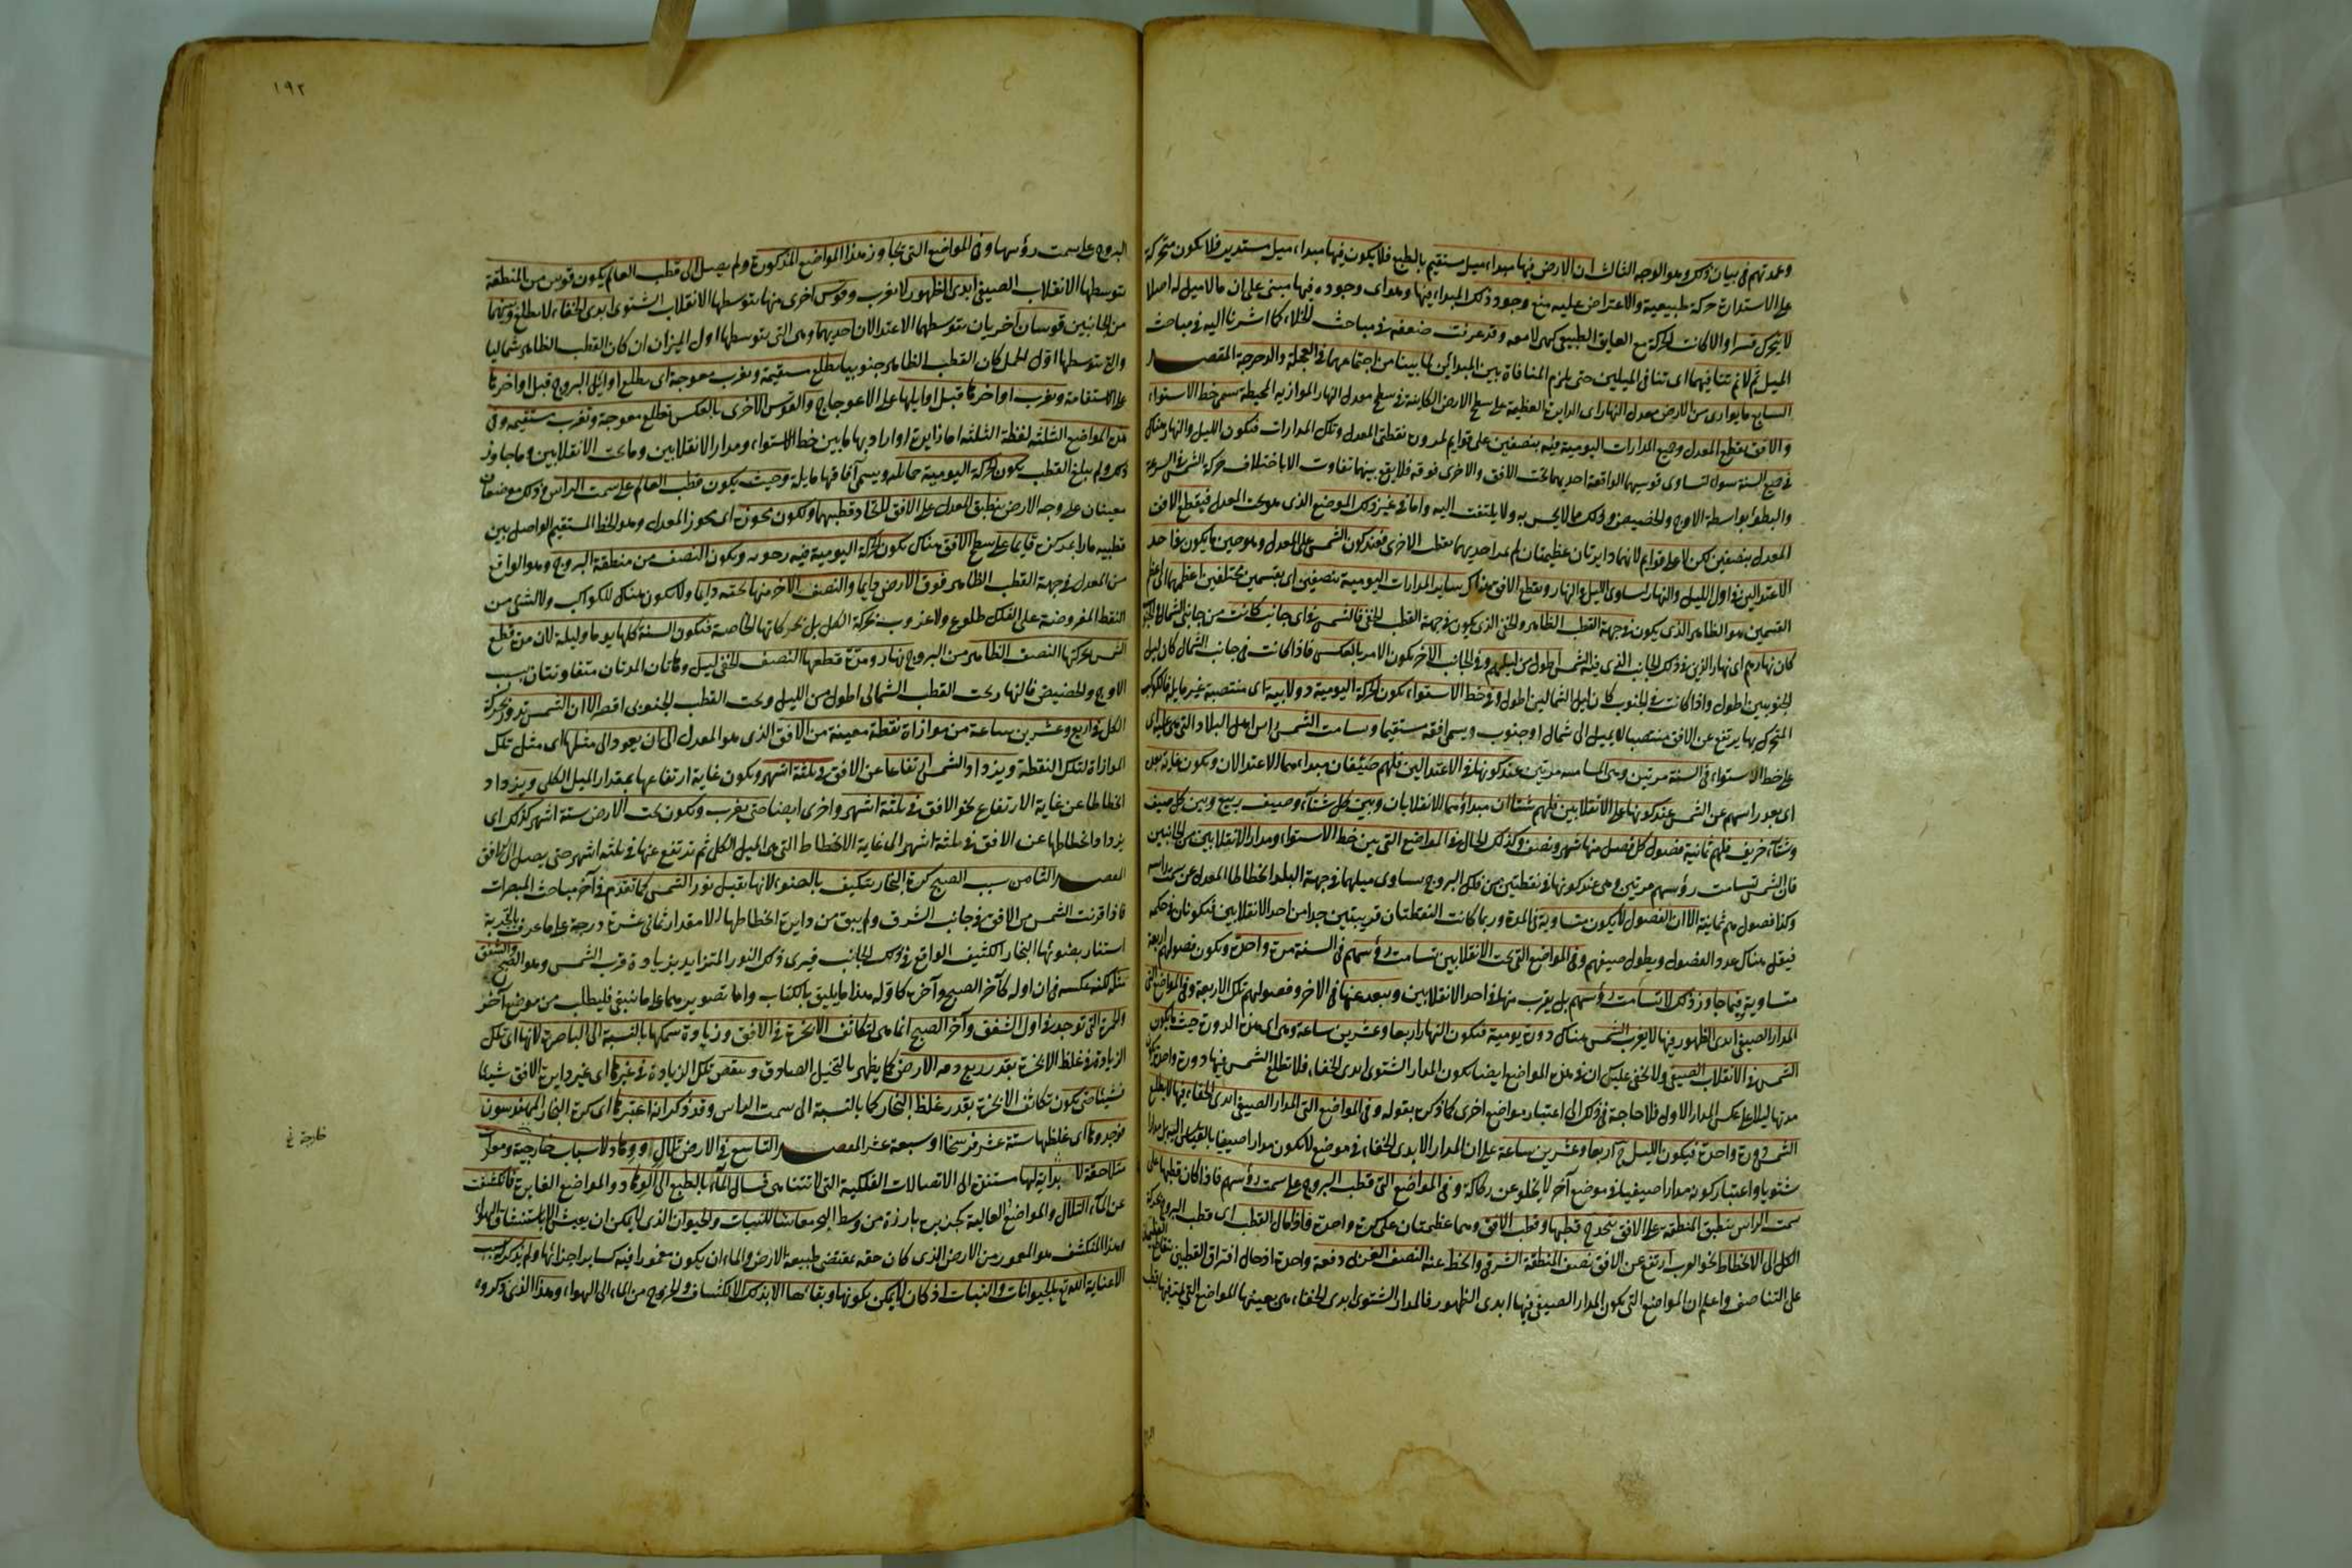 وعمدتهم في بيان ذلك وهو الوجه الثالث ان الارض فيها مبداء ميل مستقيم بالطبع فلا يكون فيها مبداء ميل مستدير فلا يكون متحركة
على الاستدارة حركة طبيعية والاعتراض عليه منع وجود ذلك المبداء فيها وهو اى وجوده فيها مبنى على ان ما لا ميل له اصلا
لا يتحرك قسرا والا كانت الحركة مع العايق الطبيعى كهى لا معه وقد عرفت ضعفه في مباحث الخلاء كما اشرنا اليه في مباحث
الميل ثم لا نم تنافيهما اى تنافى الميلين حتى يلزم المنافاة بين المبدائين لما بينا من اجتماعهما في العجلة والدحرجة المقصد
السابع ما يوازى من الارض معدل النهار اى الدايرة العظيمة على سطح الارض الكاينة في سطح معدل النهار الموازيه المحيطة سمى خط الاستواء
والافق يقطع المعدل وجميع المدارات اليومية فيه بنصفين على قوايم لمرور نقطتى المعدل وتلك المدارات فيكون الليل والنهار هناك
في جميع السنة سواء لتساوى قوسيهما الواقعة احديهما تحت الافق والاخرى فوقه فلا يقع بينهما تفاوت الا باختلاف حركة الشمس في السرعة
والبطؤ بواسطة الاوج والحضيض وذلك مما لا يحس به ولا يلتفت اليه واما في غير ذلك الموضع الذى هو تحت المعدل فيقطع الافق
المعدل بنصفين لكن لا على قوايم لانهما دايرتان عظيمتان لم يمر احديهما بقطب الاخرى فعند كون الشمس على المعدل وهو حين ما يكون في احد
الاعتدالين في اول الليل والنهار تساوى الليل والنهار ويقطع الافق هناك ساير المدارات اليومية بنصفين اى بقسمين مختلفين اعظمهما اى اعظم
القسمين هو الظاهر الذى يكون في جهة القطب الظاهر والخفى الذى يكون في جهة القطب الخفى فالشمس في اى جانب كانت من جانبى الشمال والجنوب
كان نهارهم اى نهار الذين في ذلك الجانب الذى فيه الشمس اطول من ليلهم وفي الجانب الاخر يكون الامر بالعكس فاذا كانت في جانب الشمال كان ليل
الجنوبيين اطول واذا كانت في الجنوب كان ليل الشماليين اطول وفي خط الاستواء يكون الحركة اليومية دولابية اى منتصبة غير مايلة فالكوكب
المتحرك بها يرتفع عن الافق منتصبا لا يميل الى شمال او جنوب ويسمى افقه مستقيما ويسامت الشمس راس اهل البلاد التى هى عليه اى
على خط الاستواء في السنة مرتين وهى المسامتة مرتين عند كونها في الاعتدالين فلهم صيفان مبداءهما الاعتدالان ويكون غاية بعده
اى بعد راسهم عن الشمس عند كونها على الانقلابين فلهم شتاان مبداؤهما الانقلابان وبين كل شتاء وصيف ربيع وبين كل صيف
وشتاء خريف فلهم ثمانية فصول كل فصل منها شهر ونصف وكذلك الحال في المواضع التى بين خط الاستواء ومدار الانقلابين من الجانبين
فان الشمس تسامت رؤسهم مرتين وهى عند كونها في نقطتين من فلك البروج يساوى ميلهما في جهة البلد انحطاط المعدل عن سمت راسه
وكذا فصولهم ثمانية الا ان الفصول لا يكون متساوية في المدة وربما كانت النقطتان قريبتين جدا من احد الانقلابين فتكونان في حكمه
فيقل هناك عدد الفصول ويطول صيفهم وفي المواضع التى تحت الانقلابين تسامت رؤسهم في السنة مرة واحدة ويكون فصولهم اربعة
متساوية وفيما جاوز ذلك لا تسامت رؤسهم بل يقرب منها في احد الانقلابين ويبعد عنها في الاخر وفصولهم تلك الاربعة وفي المواضع التى
المدار الصيفى ابدى الظهور فيها لا يغرب الشمس هناك دورة يومية فيكون النهار اربعا وعشرين ساعة وهى اى هذه الدورة حيث يكون
الشمس في الانقلاب الصيفى ولا يخفى عليك ان في هذه المواضع ايضا يكون المدار الشتوى ابدى الخفاء فلا تطلع الشمس فيها دورة واحدة يكون
مدتها ليلا على عكس المدار الاول فلا حاجة في ذلك الى اعتبار مواضع اخرى كما ذكره بقوله وفي المواضع التى المدار الصيفى ابدى الخفاء فيها لا يطلع
الشمس دورة واحدة فيكون الليل ح اربعا وعشرين ساعة على ان المدار الابدى الخفاء في موضع لا يكون مدارا صيفيا بالقياس اليه بل مدارا
شتويا واعتبار كونه مدارا صيفيا في موضع آخر لا يخلو عن ركاكة وفي المواضع التى قطب البروج على سمت رؤسهم فاذا كان قطبها على
سمت الراس ينطبق المنطقة على الافق يتحد ح قطبها وقطب الافق وهما عظيمتان على كرة واحدة فاذا مال القطب اى قطب البروج بحركة
الكل الى الانحطاط نحو الغرب ارتفع عن الافق نصف المنطقة الشرقى وانحط عنه النصف الغربى دفعة واحدة اذ حال افتراق القطبين يتقاطع العظيمتان
على التناصف واعلم ان المواضع التى يكون المدار الصيفى فيها ابدى الظهور فالمدار الشتوى ابدى الخفاء هى بعينها المواضع التى يمر فيها قطب
١٩٢
البروج على سمت رؤسها وفي المواضع التى تجاوز هذه المواضع المذكورة ولم يصل الى قطب العالم يكون قوس من المنطقة
يتوسطها الانقلاب الصيفى ابدى الظهور لا يغرب وقوس اخرى منها يتوسطها الانقلاب الشتوى ابدى الخفاء لا يطلع وبينهما
من الجانبين قوسان اخريان يتوسطهما الاعتدالان احديهما وهى التى يتوسطها اول الميزان ان كان القطب الظاهر شماليا
والتى يتوسطها اول الحمل ان كان القطب الظاهر جنوبيا يطلع مستقيمة ويغرب معوجة اى يطلع اوايل البروج قبل اواخرها
على الاستقامة ويغرب اواخرها قبل اوايلها على الاعوجاج والقوس الاخرى بالعكس تطلع معوجة وتغرب مستقيمه وفي
هذه المواضع الثلثه لفظة الثلثة اما زايدة او اراد بها ما بين خط الاستواء ومدار الانقلابين وما تحت الانقلابين وما جاوز
ذلك ولم يبلغ القطب يكون الحركة اليومية حمائلية ويسمى آفاقها مايلة وحيث يكون قطب العالم على سمت الراس وذلك موضعان
معينان على وجه الارض ينطبق المعدل على الافق لاتحاد قطبيهما ويكون محوره اى محور المعدل وهو الخط المستقيم الواصل بين
قطبيه مارا بمركزه قايما على سطح الافق هناك يكون الحركة اليومية فيه رحويه ويكون النصف من منطقة البروج وهو الواقع
من المعدل في جهة القطب الظاهر فوق الارض دايما والنصف الآخر منها تحته دايما ولا يكون هناك للكواكب ولا لشئ من
النقط المفروضة على الفلك طلوع ولا غروب بحركة الكل بل بحركاتها الخاصة فيكون السنة كلها يوما وليلة لان من قطع
الشمس بحركتها النصف الظاهر من البروج نهار ومدة قطعها النصف الخفى ليل وهاتان المدتان متفاوتتان بسبب
الاوج والحضيض فالنهار تحت القطب الشمالى اطول من الليل وتحت القطب الجنوبى اقصر الا ان الشمس تدور بحركة
الكل في اربع وعشرين ساعة من موازاة نقطة معينة من الافق الذى هو المعدل الى ان يعود الى مثلها اى مثل تلك
الموازاة لتلك النقطة ويزداد الشمس ارتفاعا عن الافق في ثلثة اشهر ويكون غاية ارتفاعها بمقدار الميل الكلى ويزداد
انحطاطا عن غاية الارتفاع نحو الافق في ثلثة اشهر واخرى ايضا حتى يغرب ويكون تحت الارض ستة اشهر كذلك اى
يزداد انحطاطها عن الافق في ثلثة اشهر الى غاية الانحطاط التى هى الميل الكلى ثم ترتفع عنها في ثلثه اشهر حتى يصل الى الافق
المقصد الثامن سبب الصبح كرة البخار يتكيف بالضوء لانها يقبل نور الشمس كما تقدم في آخر مباحث المبصرات
فاذا قربت الشمس من الافق في جانب الشرق ولم يبق من دايرة انحطاطها الا مقدار ثمانى عشرة درجة على ما عرف بالتجربة
استنار بضوئها البخار الكثيف الواقع في ذلك الجانب فيرى ذلك النور المتزايد بزيادة قرب الشمس وهو الصبح والشفق
مثله لكنه عكسه في ان اوله كآخر الصبح وآخره كاوله هذا ما يليق بالكتاب واما تصويرهما على ما ينبغى فليطلب من موضع آخر
والحمرة التى توجد في اول الشفق وآخر الصبح انما هى لتكاثف الابخرة في الافق وزيادة سمكها بالنسبة الى الباصرة لانها اى تلك
الزيادة في غلظ الابخرة بقدر ربع دور الارض كما يظهر بالتخيل الصادق وينقص تلك الزيادة في غيرها اى غير دايرة الافق شيئا
فشيئا حتى يكون تكاثف الابخرة بقدر غلظ البخار كما بالنسبة الى سمت الراس وقد ذكر انه اعتبرها اى كرة البخار المهندسون
فوجدوها اى غلظها ستة عشر فرسخا او سبعة عشر المقصد التاسع في الارض تلال ووهاد لاسباب خارجية ومعدات
متلاحقة لا بداية لها مستندة الى الاتصالات الفلكية التى لا تتناهى فسال الماء بالطبع الى الوهاد والمواضع الغايرة فانكشفت
عن الماء التلال والمواضع العالية كجزيرة بارزة من وسط البحر معاشا للنبات والحيوان الذى لا يمكن ان يعيش الا باستنشاق الهواء
وهذا المنكشف هو المعمور من الارض الذى كان حقه بمقتضى طبيعة الارض والماء ان يكون مغمورا فيه كساير اجزائها ولم يذكر له سبب
الا عناية الله تع بالحيوانات والنباتات اذ كان لا يمكن تكونها وبقائها الا بذلك الانكشاف والخروج من الماء الى الهواء وهذا الذى ذكروه
خارجة خ